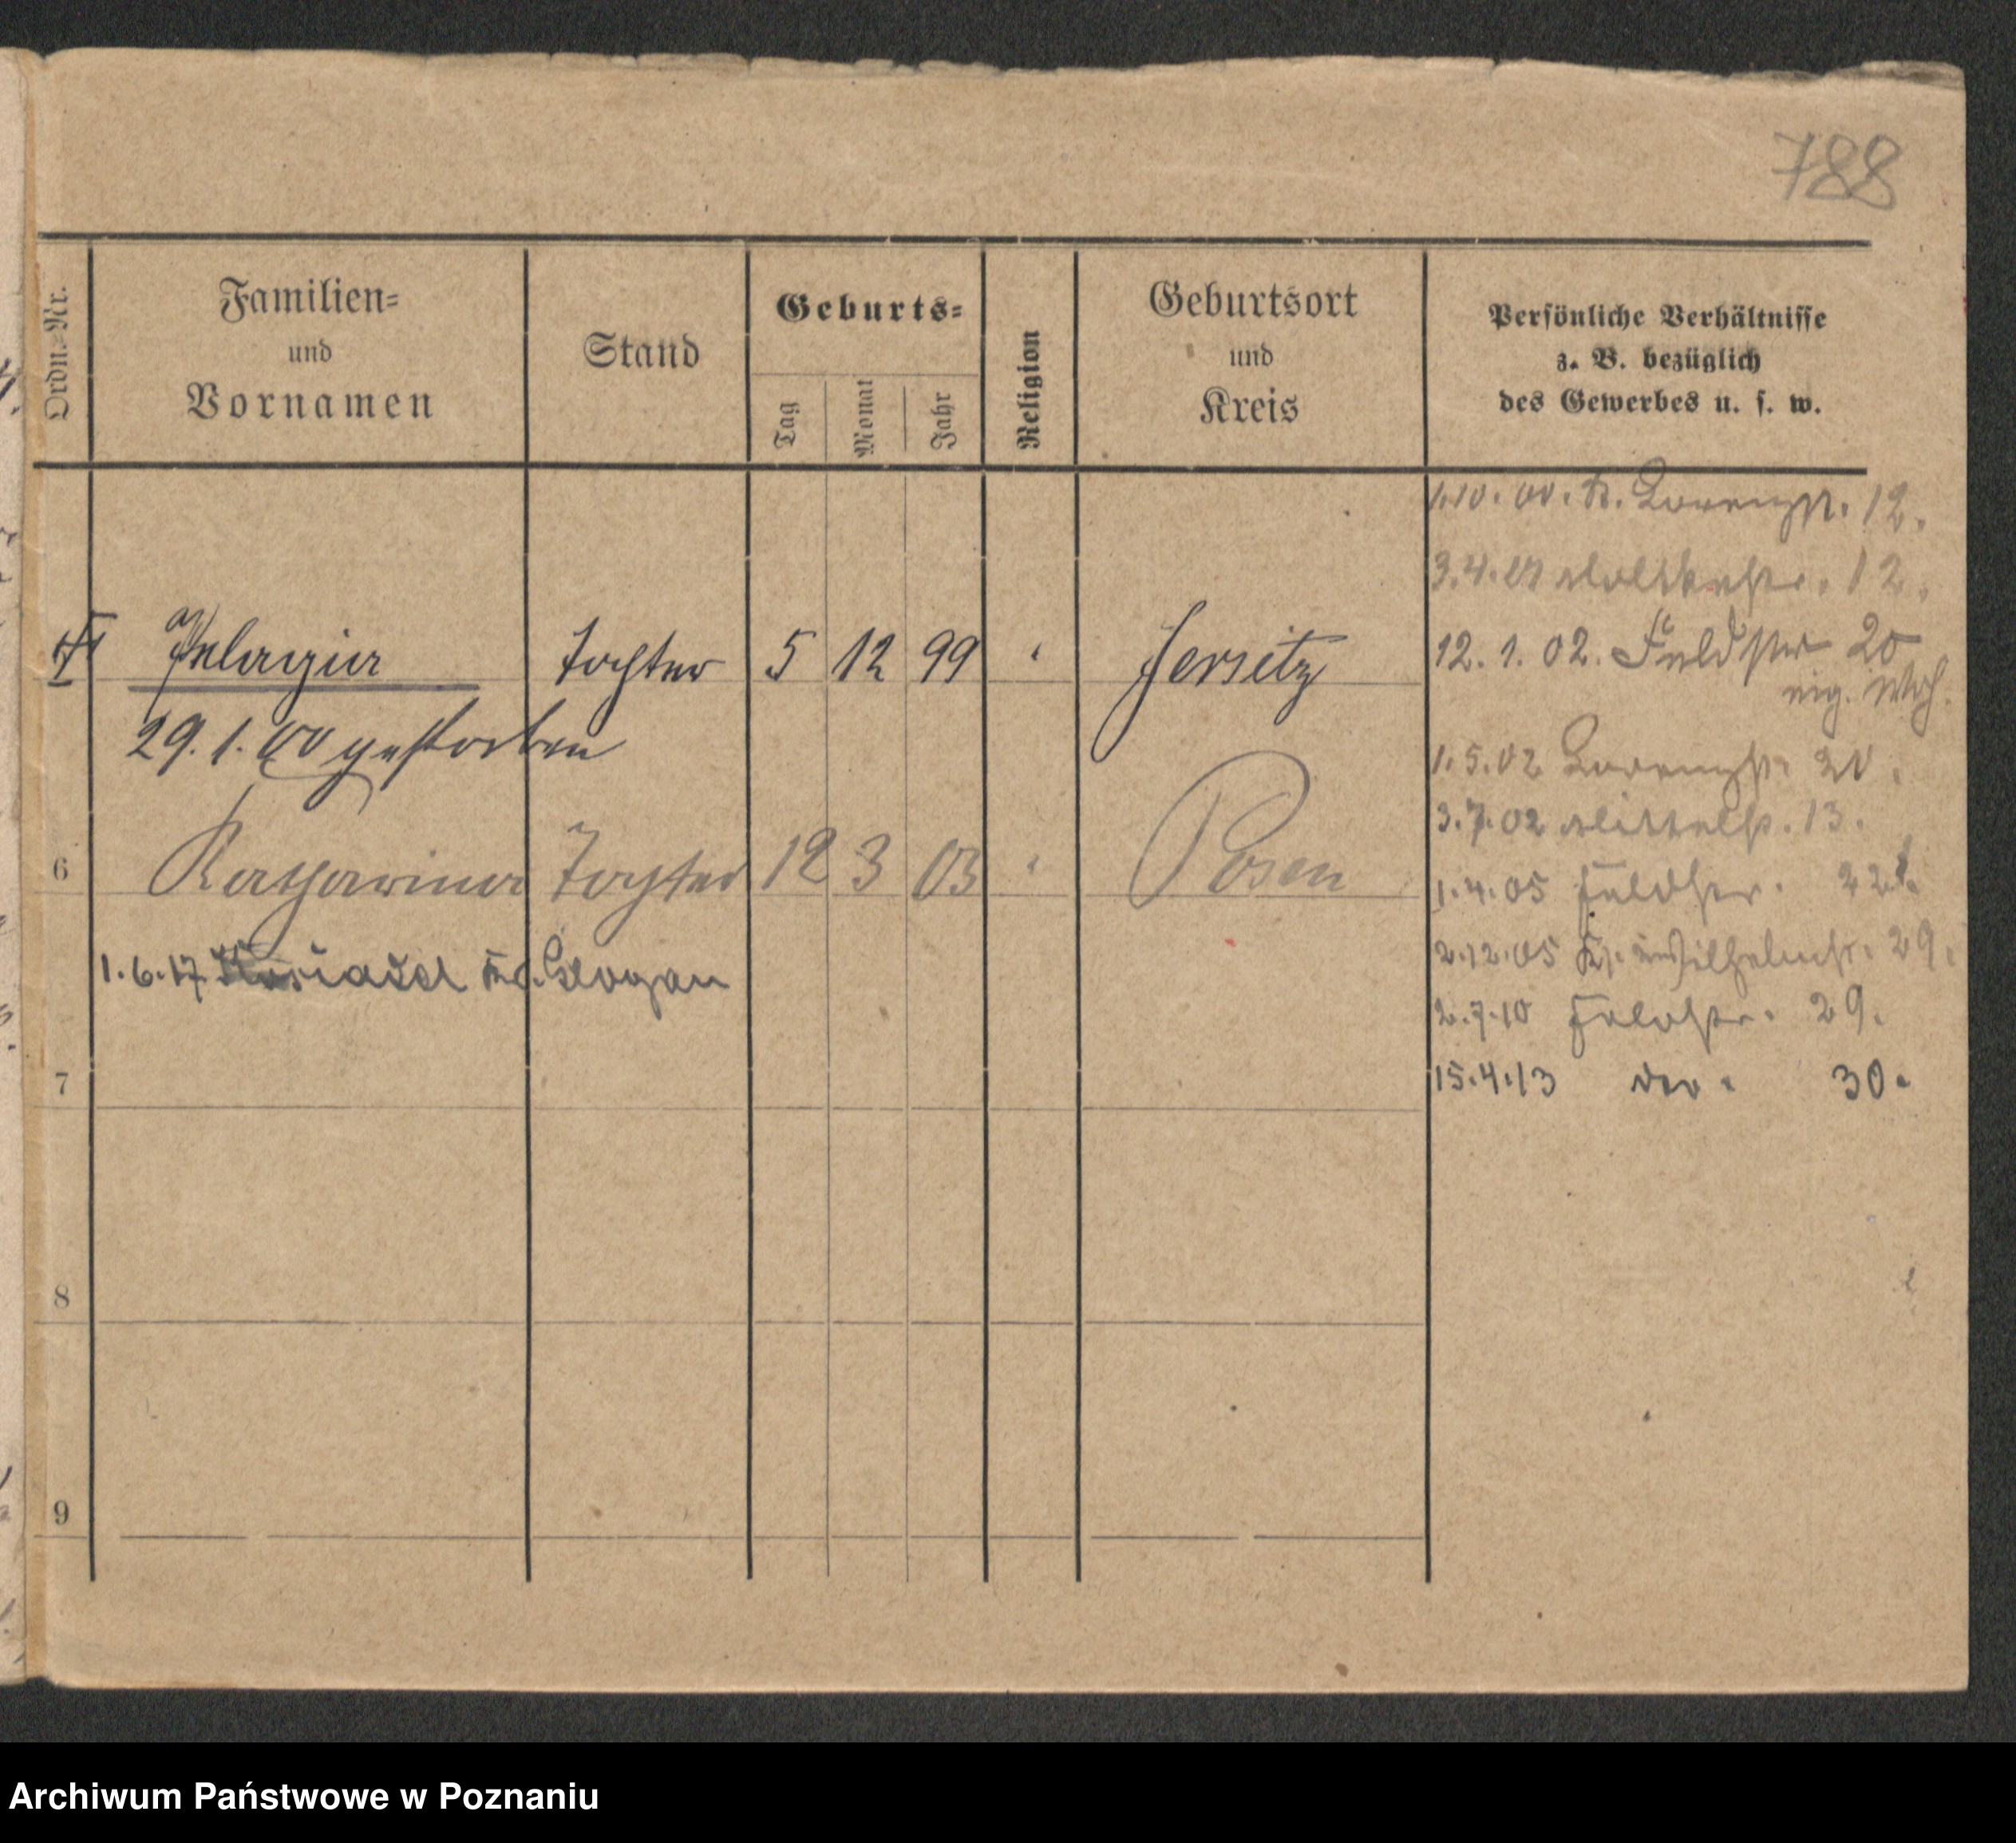 788
Ordn.-Nr.
Familien-
und
Vornamen
Stand
Geburts-
Tag
Monat
Jahr
Religion
Geburtsort
und
Kreis
Persönliche Verhältnisse
z. B. bezüglich
des Gewerbes u. s. w.
1.10.00. Lorenzstr. 12.
3.4.01 Moltkestr. 12.
Pelagia Tochter 5 12 99 " Jersitz
12. 1. 02. Feldstr 20
eig. Whg.
29. 1. 00 gestorben
1.5.02 Lorenzstr 20.
3.7.02 Mittelstr. 13.
6 Katharina Tochter 12 3 03 " Posen
1.4.05 Feldstr. 22
1.6.17 Kr. Glogau
2.12.05 Wilhelmstr. 29.
2.7.10 Feldstr. 29.
7
15.4.13 do. 30.
8
9
Archiwum Państwowe w Poznaniu